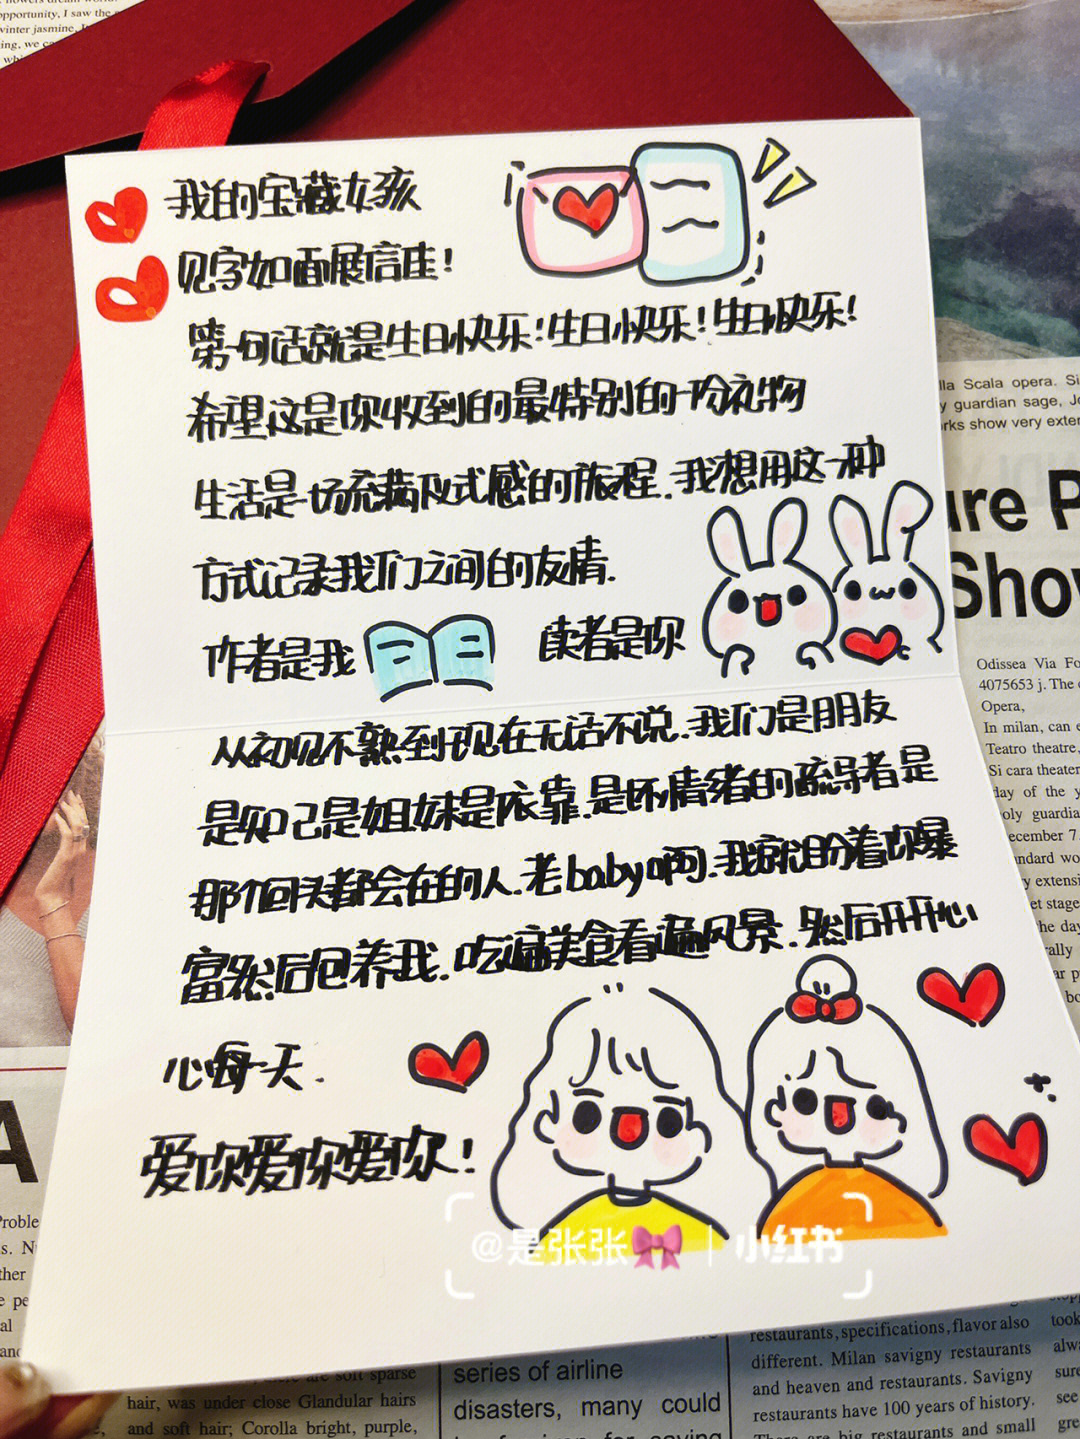 我的宝藏女孩
见字如面展信佳!
第一句话就是生日快乐!生日快乐!生日快乐!
希望这是你收到的最特别的一份礼物
生活是一场充满仪式感的旅程.我想用这一种
方式记录我们之间的友情.
作者是我 读者是你
从初见不熟到现在无话不说.我们是朋友
是知己是姐妹是依靠.是坏情绪的疏导者是
那个回头都会在的人.老baby啊.我就盼着你暴
富然后包养我.吃遍美食看遍风景.然后开开心
心每一天.
爱你爱你爱你!
@是张张🎀 | 小红书
opportunity, I saw the
winter jasmine,
lla Scala opera. Si
y guardian sage,
rks show very exter
ure P
Show
Odissea Via Fo
4075653 j. The
Opera,
In milan, can
Teatro theatre,
Si cara theater
day of the y
oly guardia
ecember 7
andard wo
y extensi
et stage
he day
rally
A
Proble
s. N
ther
e pe
al
and
there are soft sparse
hair, was under close Glandular hairs
and soft hair; Corolla bright, purple,
series of airline
disasters, many could
restaurants, specifications, flavor also
different. Milan savigny restaurants
and heaven and restaurants. Savigny
restaurants have 100 years of history.
There are big restaurants and small
took
alwa
sure
see
gre